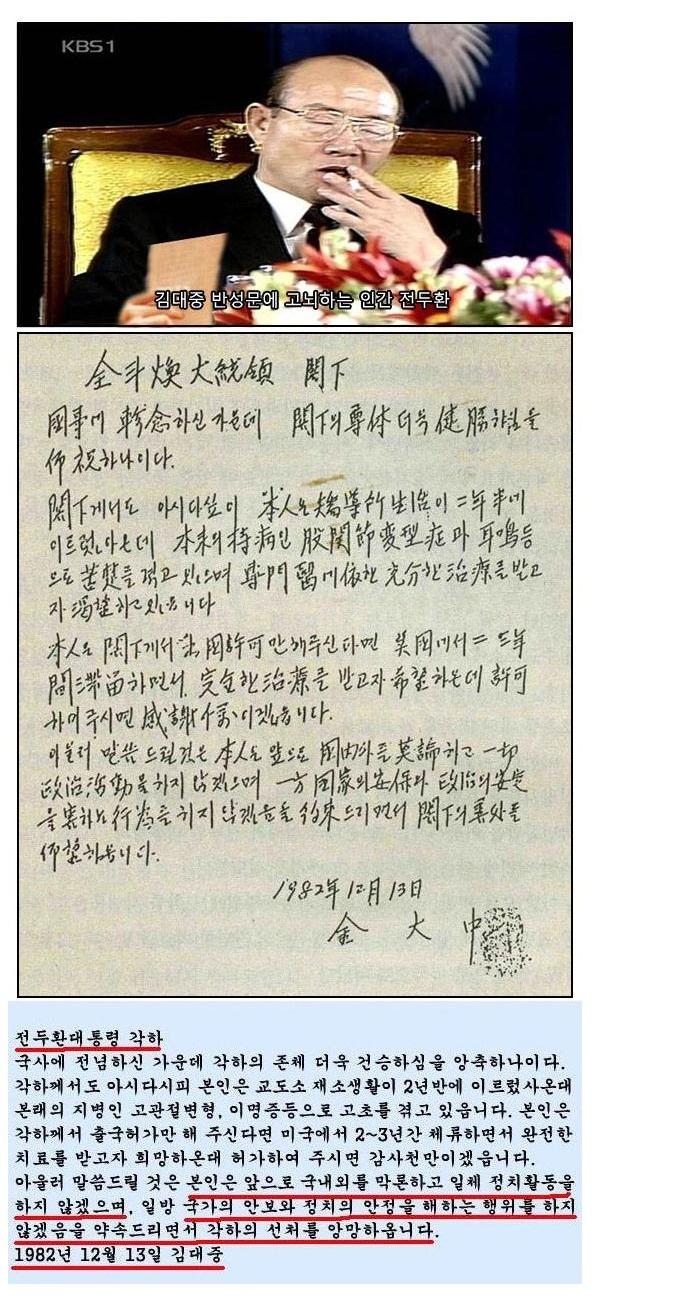 KBS1
김대중 반성문에 고뇌하는 인간 전두환
全斗煥大統領 閣下
國事에 軫念하신 가운데 閣下의 尊体 더욱 健勝하심을
仰祝하나이다.
閣下게서도 아시다싶이 本人은 矯導所生活이 二年半에
이르렀아온데 本來의 持病인 股関節変型症과 耳鳴등
으로 苦楚를 격고 있으며 專門醫에 依한 充分한 治療를 받고
자 渴望하고 있읍니다
本人은 閣下께서 出國許可만 해주신다면 美國에서 二 三年
間 滯留하면서 完全한 治療를 받고자 希望하온데 許可
하여 주시면 感謝千萬이겠읍니다.
아울러 말씀 드릴것은 本人은 앞으로 國內外를 莫論하고 一切
政治活動을 하지 않겠으며 一方 國家의 安保와 政治의 安定
을 害하는 行爲를 하지 않겠음을 約束드리면서 閣下의 善処를
仰望하옵니다.
1982年12月13日
金 大 中
전두환대통령 각하
국사에 전념하신 가운데 각하의 존체 더욱 건승하심을 앙축하나이다.
각하께서도 아시다시피 본인은 교도소 재소생활이 2년반에 이르렀사온대
본래의 지병인 고관절변형, 이명증등으로 고초를 겪고 있읍니다. 본인은
각하께서 출국허가만 해 주신다면 미국에서 2~3년간 체류하면서 완전한
치료를 받고자 희망하온대 허가하여 주시면 감사천만이겠읍니다.
아울러 말씀드릴 것은 본인은 앞으로 국내외를 막론하고 일체 정치활동을
하지 않겠으며, 일방 국가의 안보와 정치의 안정을 해하는 행위를 하지
않겠음을 약속드리면서 각하의 선처를 앙망하옵니다.
1982년 12월 13일 김대중